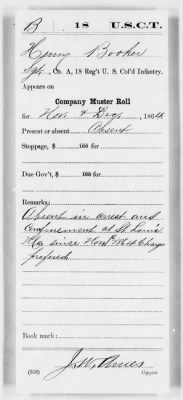 B | 18 | U.S.C.T.
Henry Booker
Sgt., Co. A, 18 Reg't U. S. Col'd Infantry.
Appears on
Company Muster Roll
for Nov & Dec, 1864.
Present or absent Absent
Stoppage, $ 100 for
Due Gov't, $ 100 for
Remarks:
Absent in arrest and
confinement at St Louis
Mo since Nov 1864 Charges
prefered
Book mark:
J. W. Ames
(358) Copyist.